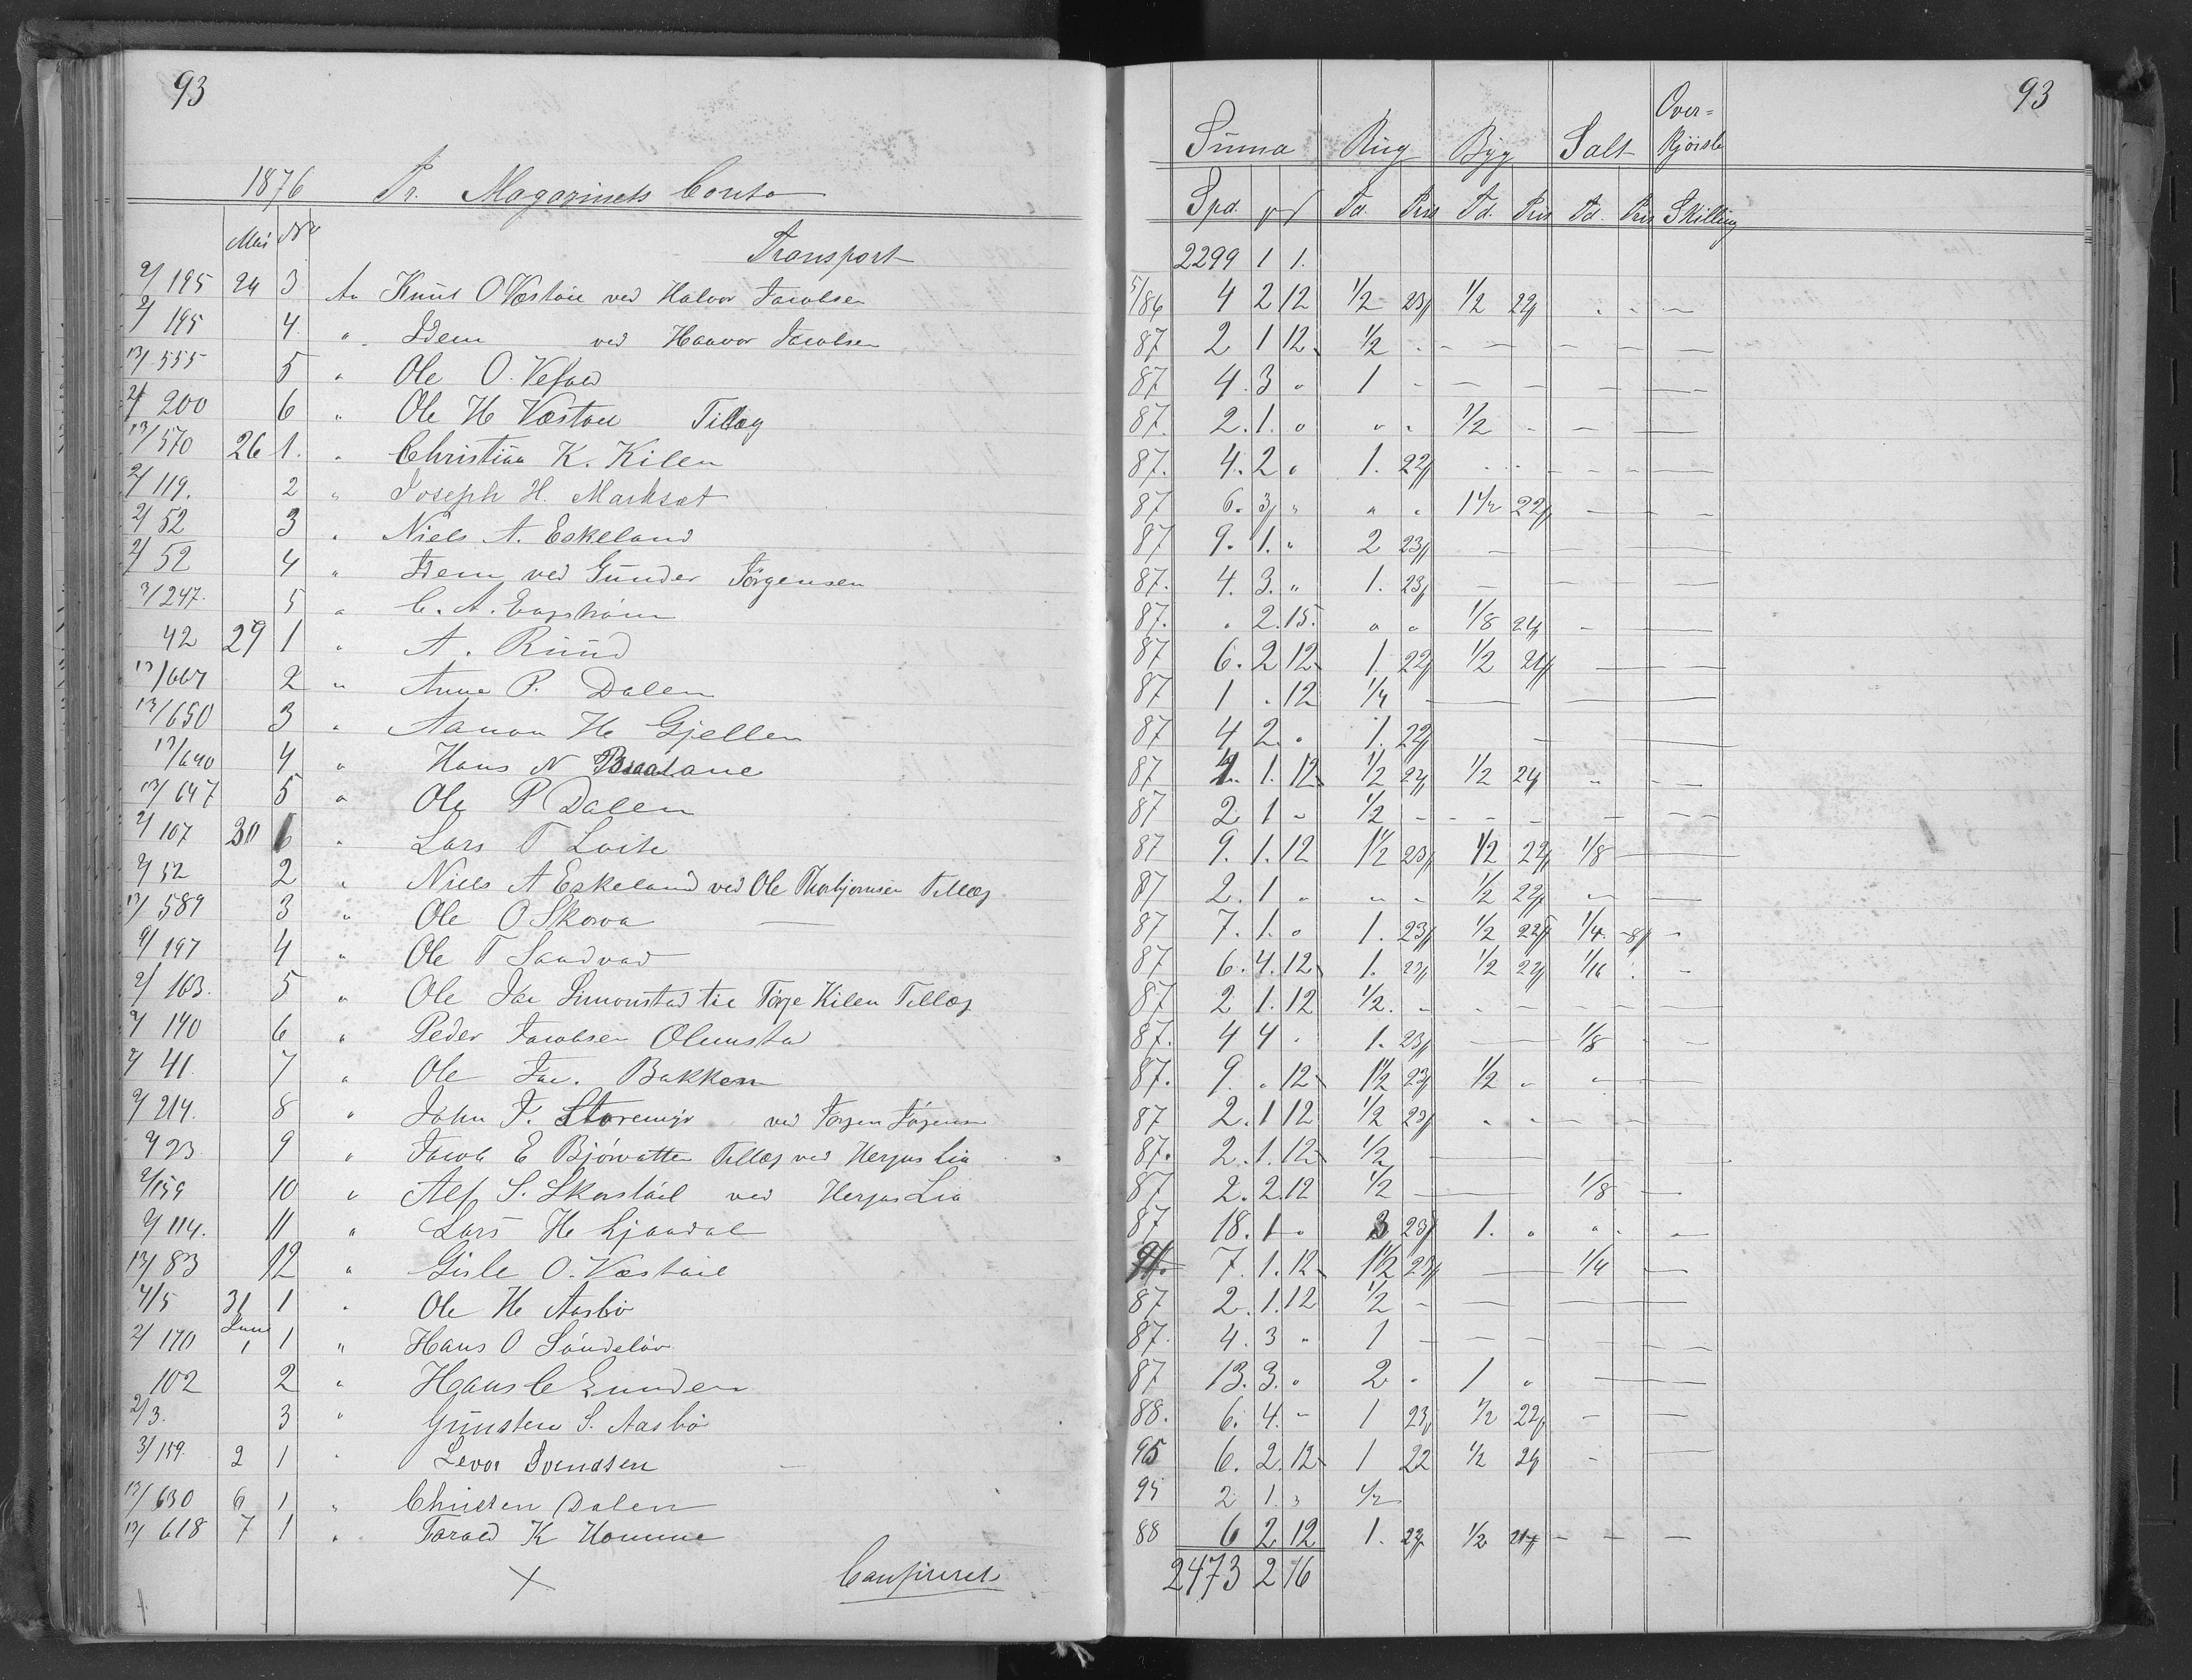 93
1876 Pr. Magazinets Conto
Mai No
Transport
2/195 24 3 An Knut O Væstøil ved Halvor Jacobsen
2/195 4 " Idem ved Haavor Jacobsen
13/555 5 " Ole O. Vefald
2/200 6 " Ole H Væstøil Tillæg
13/570 26 1. " Christian K. Kilen
2/119. 2 " Joseph H. Marksæt
2/52 3 " Niels A. Eskeland
2/52 4 " Idem ved Gunder Jörgensen
3/247. 5 " C. A. Engström
42 29 1 " A. Ruud
13/667 2 " Anne P. Dalen
13/650 3 " Aanon H Gjellen
13/640 4 " Hans N Braatane
13/647 5 " Ole P Dalen
2/107 30 " Lars T Loite
2/52 2 " Niels A Eskeland ved Ole Thorbjørnsen Tillæg
13/589 3 " Ole O Skorva
2/197 4 " Ole T Sandvad
2/163. 5 " Ole Jac Simonstad til Törje Kilen Tillæg
2/140 6 " Peder Jacobsen Olimstad
2/41 7 " Ole Jac. Bakken
2/214. 8 " John T. Storemyr ved Jörgen Jörgensen
2/23. 9 " Jacob E Bjórvatten Tillæg ved Herjus Lia
2/159 10 " Alf S. Skorstöil ved Herjus Lia
2/114. 11 " Lars H Ljaadal
13/83 12 " Gisle O. Væstøil
4/5 31 1 " Ole H Aasbö
Juni
2/170 1 1 " Hans O Söndeløv
102 2 " Hans C Lunden
2/3. 3 " Gunsten S. Aasbö
3/159. 2 1 " Levor Svendsen
13/630 6 1 " Christen Dalen
13/618 7 1 " Tarald K Homme
Canfereret
93
Summa Rug Byg Salt Over= kjörsle
Spd. Td. Pris Td. Pris Td. Pris Skilling
2299 1 1.
5/86 4 2 12 1/2 23 1/2 22
87 2 1 12 1/2
87 4. 3 " 1
87. 2. 1. " " " 1/2
87. 4. 2 " 1. 22
87 6. 3 " " " 1 1/2 22
87 9. 1. " 2 23
87. 4. 3. " 1. 23
87. " 2. 15. " " 1/8 24
87 6. 2 12 1 22 1/2 21
87 1 . 12 1/4
87 4 2. " 1. 22
87 4. 1. 12 1/2 24 1/2 24
87 2 1 " 1/2
87 9. 1. 12 1 1/2 23 1/2 22 1/8
87 2. 1 " " " 1/2 22
87 7. 1. " 1. 23 1/2 22 1/4 8
87 6. 4. 12 1. 23 1/2 22 1/16
87 2 1. 12 1/2.
87. 4 4 " 1. 23 1/8
87. 9. " 12 1 1/2 23 1/2 "
87 2. 1 12 1/2 23
87. 2. 1. 12 1/2
87 2. 2. 12 1/2 1/8
87 18. 1 " 3 23 1. "
91. 7. 1. 12 1 1/2 23 1/4
87 2. 1. 12 1/2
87. 4. 3 " 1
87 13. 3. " 2 " 1 "
88. 6. 4. " 1 23 1/2 22
95 6. 2. 12 1 22 1/2 21
95 2 1. " 1/2
88 6 2 12 1. 22 1/2 21
2473 2 16